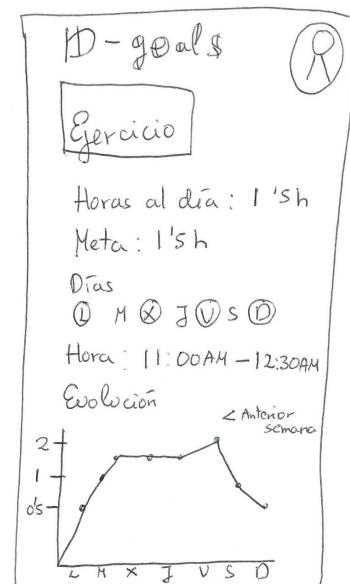 ID-goals
Ejercicio
Horas al día: 1'5h
Meta: 1'5h
Días
L M X J V S D
Hora: 11:00AM - 12:30AM
Evolución
< Anterior
semana
2
1
0'5
L M X J V S D